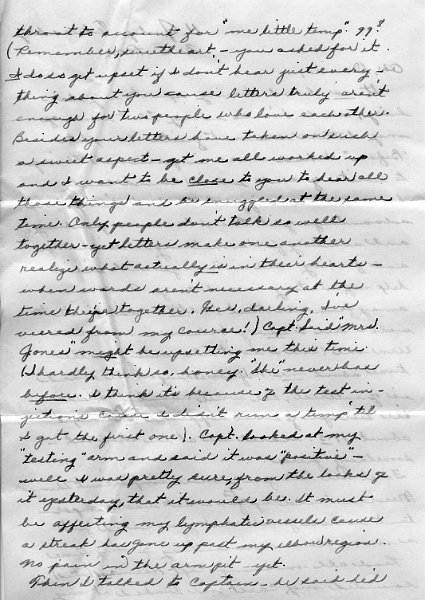 throat to account for "me little temp". 99³
(Remember, sweetheart, - you asked for it.
I do so get upset if I don't hear just every-
thing about you cause letters truly aren't
enough for two people who love each other.
Besides your letters have taken on such
a sweet aspect - get me all worked up
and I want to be close to you to hear all
those things and be snuggled at the same
time. Only people don't talk so well
together - yet letters make one another
realize what actually is in their hearts -
when words aren't necessary at the
time they're together. Gee, darling, I've
veered from my course!) Capt. said "Mrs.
Jones" might be upsetting me this time
(I hardly think so, honey. "She" never has
before. I think it's because of the test in-
jections cause I didn't run a temp 'til
I got the first one). Capt. looked at my
"testing" arm and said it was "positive" -
well I was pretty sure, from the looks of
it yesterday, that it would be. It must
be affecting my lymphatic vessels cause
a streak has gone up past my elbow region.
No pain in the armpit yet.
Then I talked to Captain - he said he'd